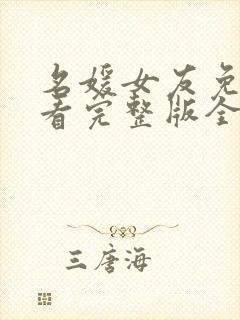 名媛女友免
看完整版全
三唐海